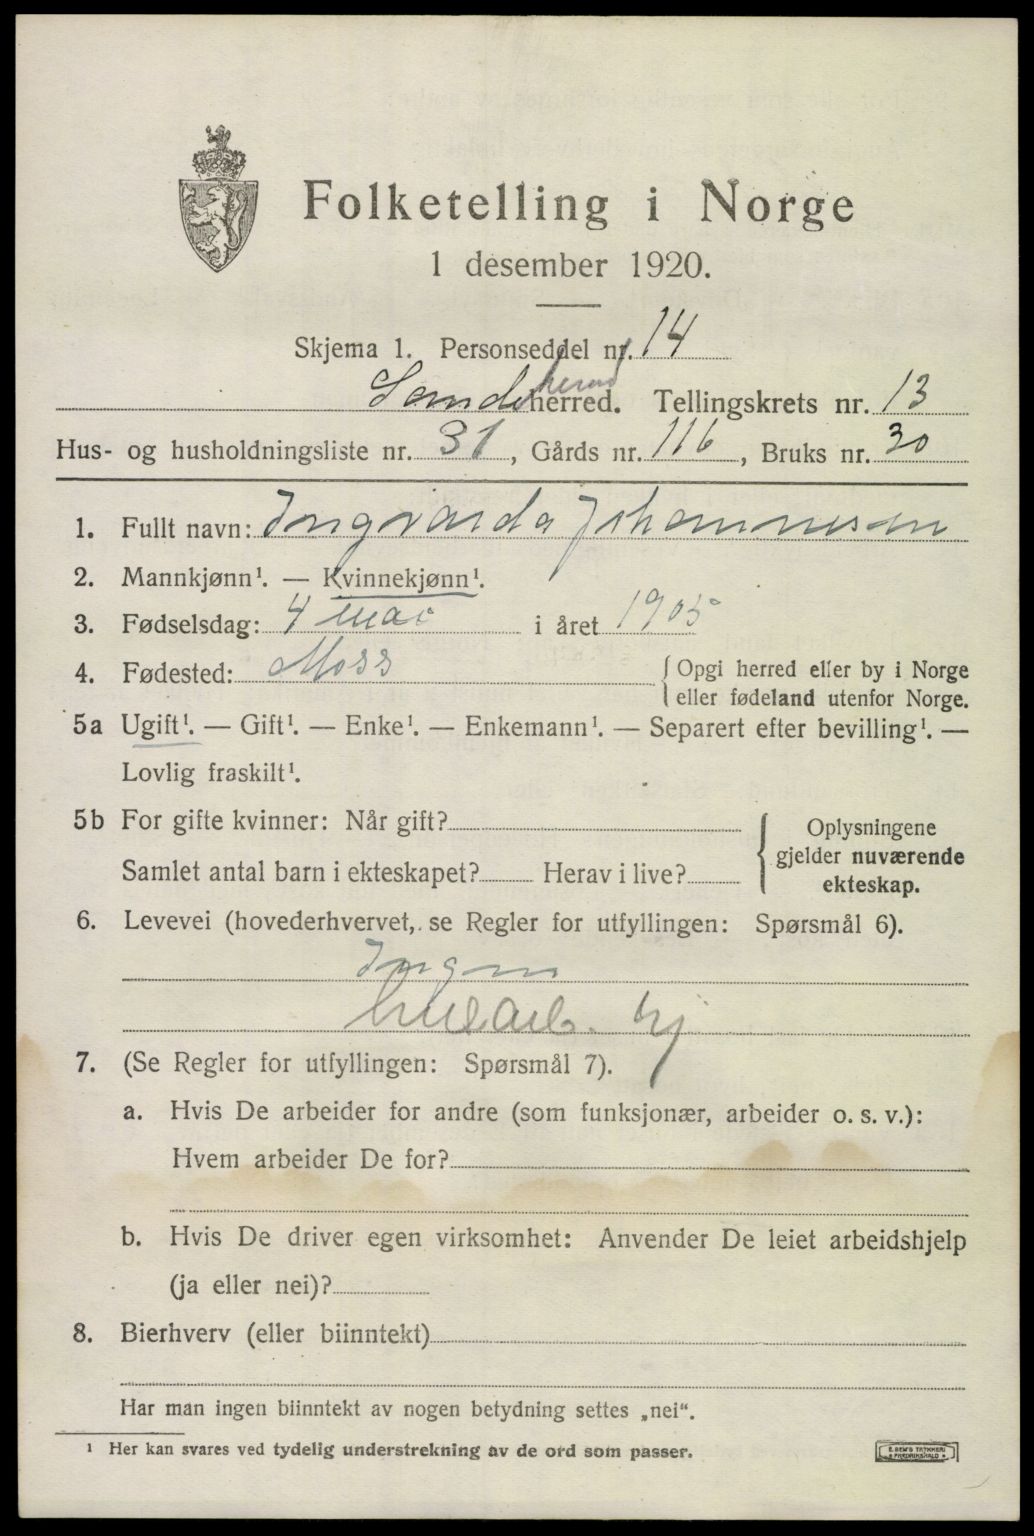 Folketelling i Norge
1 desember 1920.
Skjema 1. Personseddel nr. 14
Sandeherred. Tellingskrets nr. 13
Hus- og husholdningsliste nr. 31, Gårds nr. 116, Bruks nr. 30
1. Fullt navn: Ingvarda Johannesen
2. Mannkjønn¹. — Kvinnekjønn¹.
3. Fødselsdag: 4 mai i året 1905
4. Fødested: Moss { Opgi herred eller by i Norge
eller fødeland utenfor Norge.
5a Ugift¹. — Gift¹. — Enke¹. — Enkemann¹. — Separert efter bevilling¹. —
Lovlig fraskilt¹.
5b For gifte kvinner: Når gift?
Samlet antal barn i ekteskapet? Herav i live?
{ Oplysningene
gjelder nuværende
ekteskap.
6. Levevei (hovederhvervet, se Regler for utfyllingen: Spørsmål 6).
Ingen
husarb. hj
7. (Se Regler for utfyllingen: Spørsmål 7).
a. Hvis De arbeider for andre (som funksjonær, arbeider o. s. v.):
Hvem arbeider De for?
b. Hvis De driver egen virksomhet: Anvender De leiet arbeidshjelp
(ja eller nei)?
8. Bierhverv (eller biinntekt)
Har man ingen biinntekt av nogen betydning settes „nei".
¹ Her kan svares ved tydelig understrekning av de ord som passer.
E. SEM'S TRYKKERI
FREDRIKSHALD